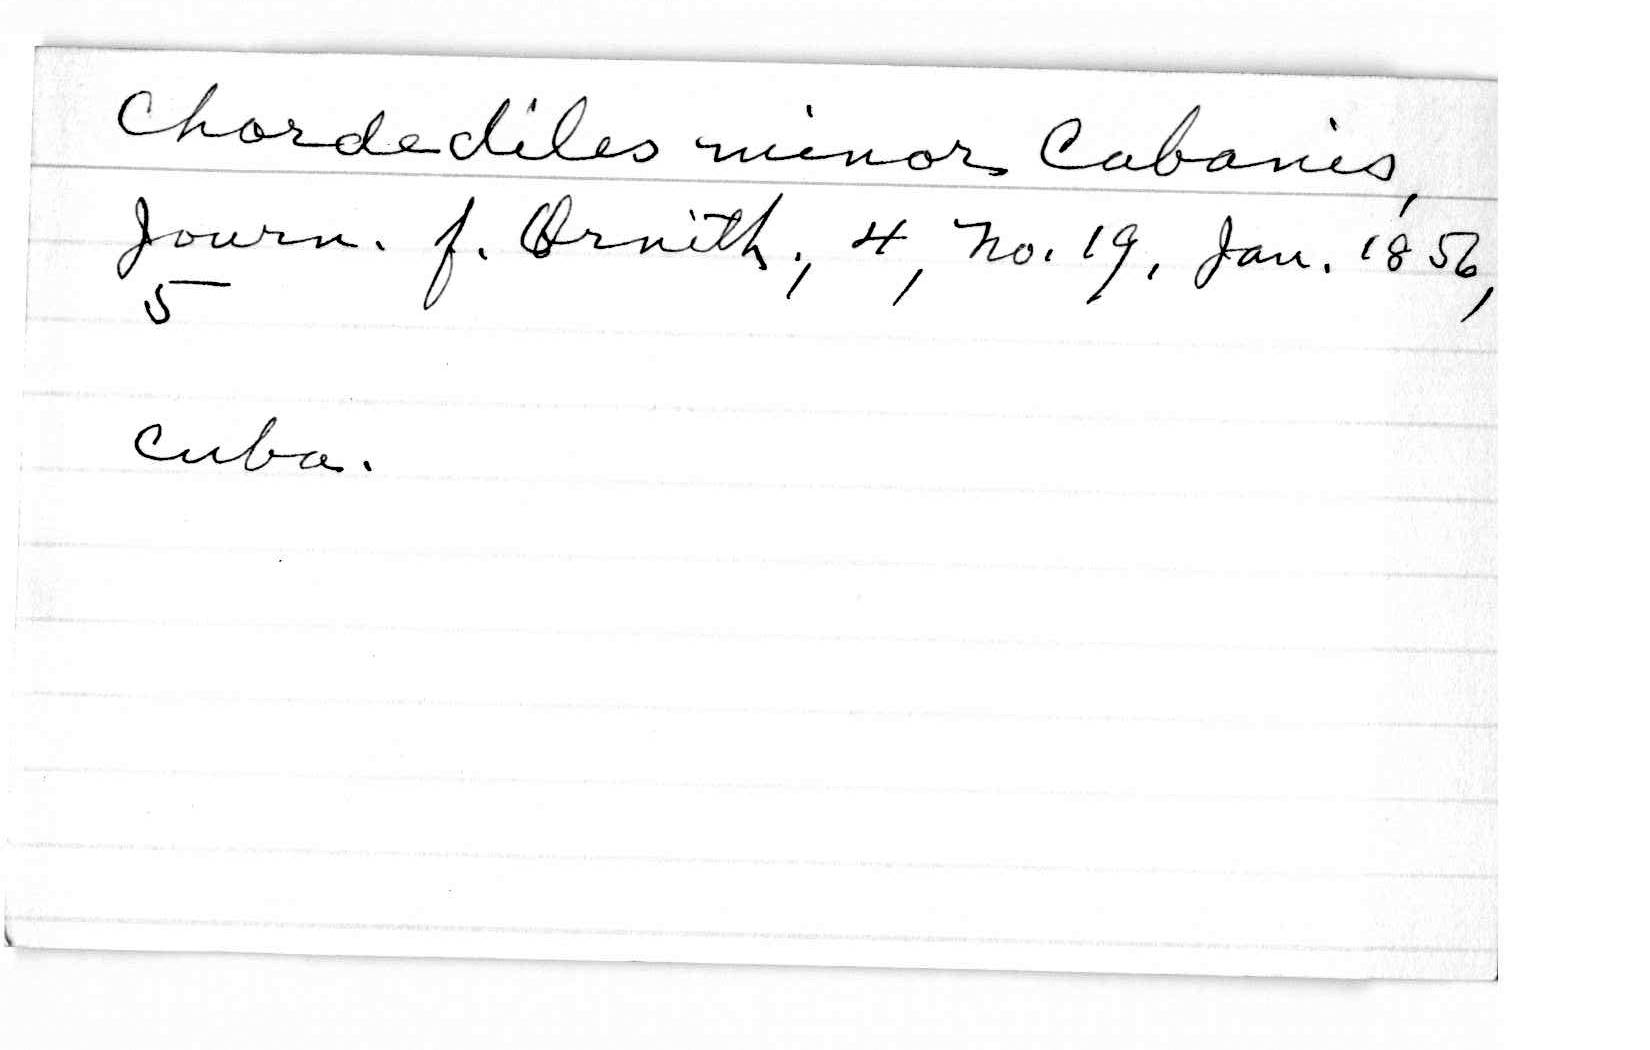 Chordediles minor Cabanis,
Journ. f. Ornith., 4, No. 19, Jan. 1856,
5
Cuba.